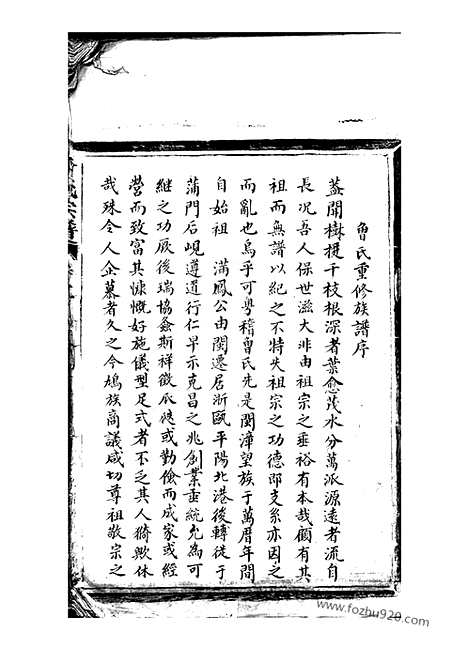 魯氏重修族譜序
蓋聞樹提千枝根深者葉愈茂水分萬派源遠者流自
長况吾人保世滋大非由祖宗之垂裕有本哉顧有其
祖而無譜以紀之不特失祖宗之功德即支系亦因之
而亂也烏乎可粵稽魯氏先是閩漳望族于萬曆年間
自始祖　滿鳳公由閩遷居浙甌平陽北港後轉徙于
蒲門后峴遵道行仁早示克昌之兆創業垂統允為可
繼之功厥後瑞協螽斯祥徵瓜瓞或勤儉而成家或經
營而致富其慷慨好施儀型足式者不乏其人猗歟休
哉殊令人企慕者久之今鳩族商議咸切尊祖敬宗之
氏宗譜
www.fozhu920.com